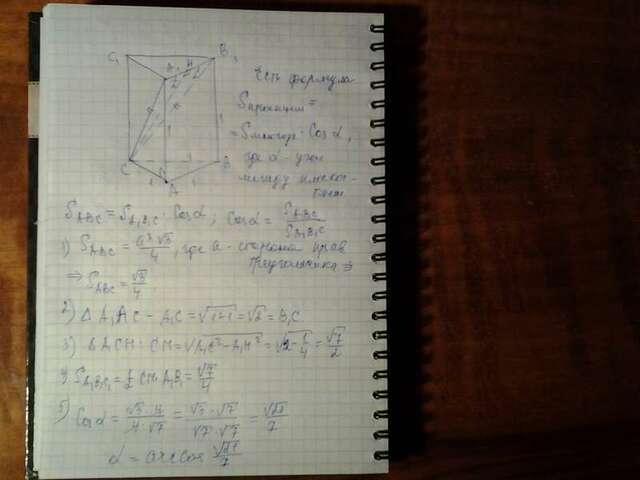 C₁ B₁
A₁ H
C B
A
Есть формула
Sпроекции =
= Sмногоуг · Cos α,
где α - угол
между плоскос-
тями
S_ABC = S_A₁B₁C · Cos α; Cos α = S_ABC / S_A₁B₁C
1) S_ABC = a²√3/4, где a - сторона прав
треугольника ⇒
⇒ S_ABC = √3/4
2) Δ A₁AC - A₁C = √1+1 = √2 = B₁C
3) Δ A₁CH: CH = √A₁C² - A₁H² = √2 - 1/4 = √7/2
4) S_A₁B₁C = 1/2 CH · A₁B₁ = √7/4
5) Cos α = √3 · 4 / 4 · √7 = √3 · √7 / √7 · √7 = √21/7
α = arccos √21/7